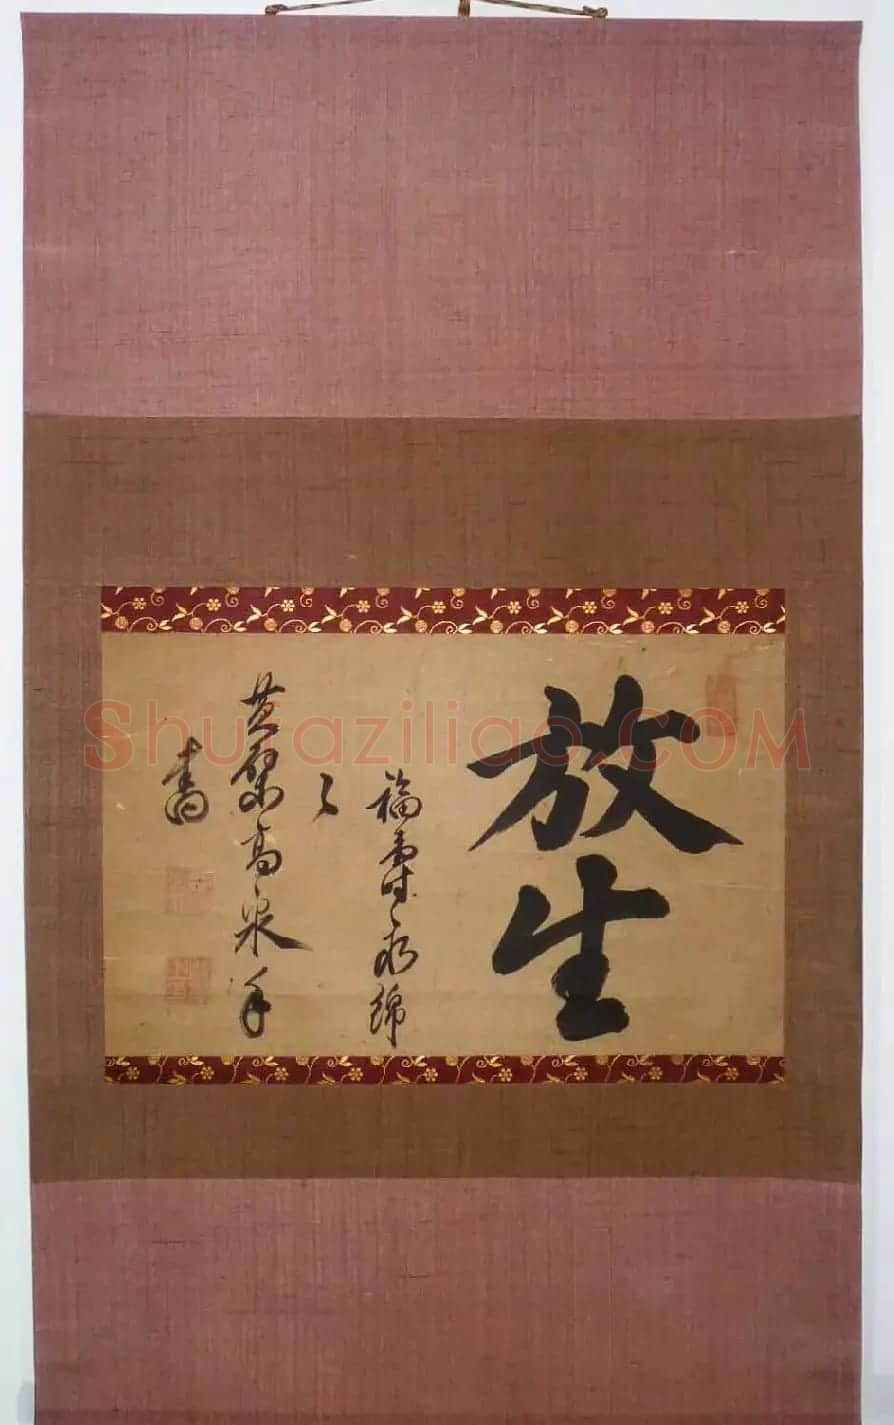 放生
福壽永綿
々
黃檗高泉手
書
Shufaziliao.COM